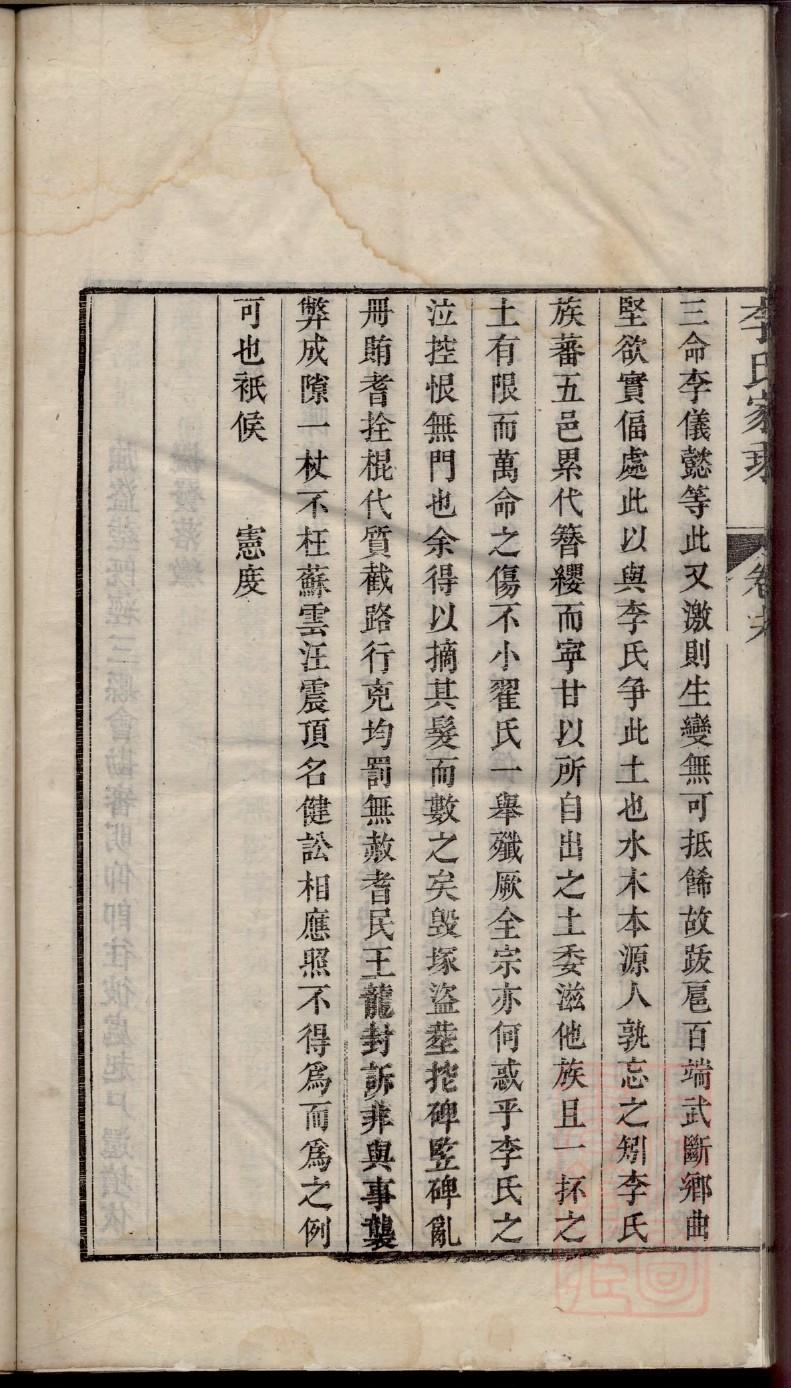 李氏家乘 卷六
三命李儀懿等此又激則生變無可抵餙故跋扈百端武斷鄉曲
堅欲實偪處此以與李氏爭此土也水木本源人孰忘之矧李氏
族蕃五邑累代簪纓而寜甘以所自出之土委滋他族且一抔之
土有限而萬命之傷不小翟氏一舉殲厥全宗亦何惑乎李氏之
泣控恨無門也余得以摘其髮而數之矣毁塚盜塟挖碑豎碑亂
冊賄耆拴棍代質截路行兇均罰無赦耆民王龍封訴非與事襲
弊成隙一杖不枉蘇雲汪震頂名健訟相應照不得爲而爲之例
可也祇候 憲度